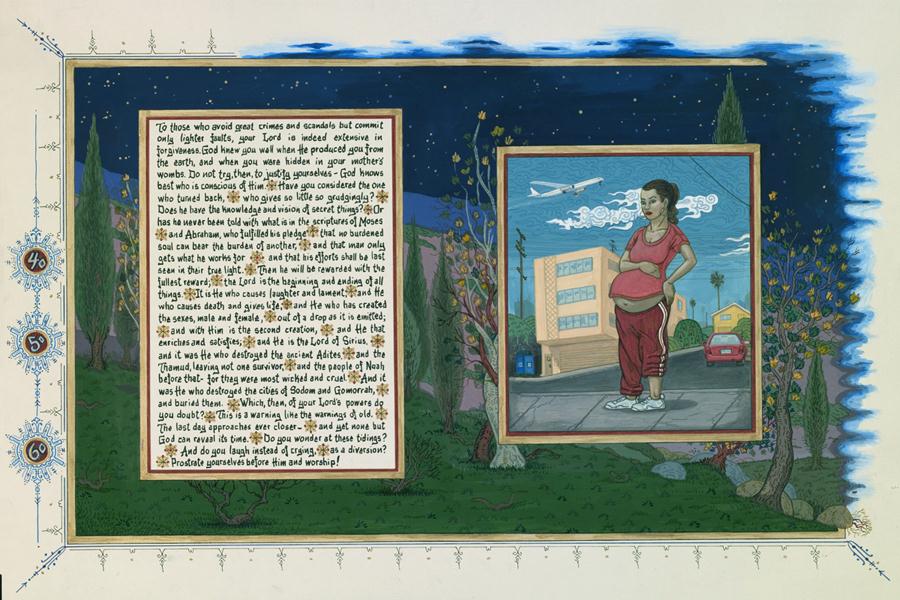 To those who avoid great crimes and scandals but commit
only lighter faults, your Lord is indeed extensive in
forgiveness. God knew you well when He produced you from
the earth, and when you were hidden in your mother's
wombs. Do not try, then, to justify yourselves - God knows
best who is conscious of Him. Have you considered the one
who turned back, who gives so little so grudgingly?
Does he have the knowledge and vision of secret things? Or
has he never been told with what is in the scriptures of Moses
and Abraham, who fulfilled his pledge that no burdened
soul can bear the burden of another, and that man only
gets what he works for and that his efforts shall be last
seen in their true light. Then he will be rewarded with the
fullest reward; the Lord is the beginning and ending of all
things. It is He who causes laughter and lament, and He
who causes death and gives life, and He who has created
the sexes, male and female, out of a drop as it is emitted;
and with Him is the second creation, and He that
enriches and satisfies; and He is the Lord of Sirius,
and it was He who destroyed the ancient Adites, and the
Thamud, leaving not one survivor, and the people of Noah
before that - for they were most wicked and cruel. And it
was He who destroyed the cities of Sodom and Gomorrah,
and buried them. Which, then, of your Lord's powers do
you doubt? This is a warning like the warnings of old.
The last day approaches ever closer - and yet none but
God can reveal its time. Do you wonder at these tidings?
And do you laugh instead of crying, as a diversion?
Prostrate yourselves before Him and worship!
40
50
60